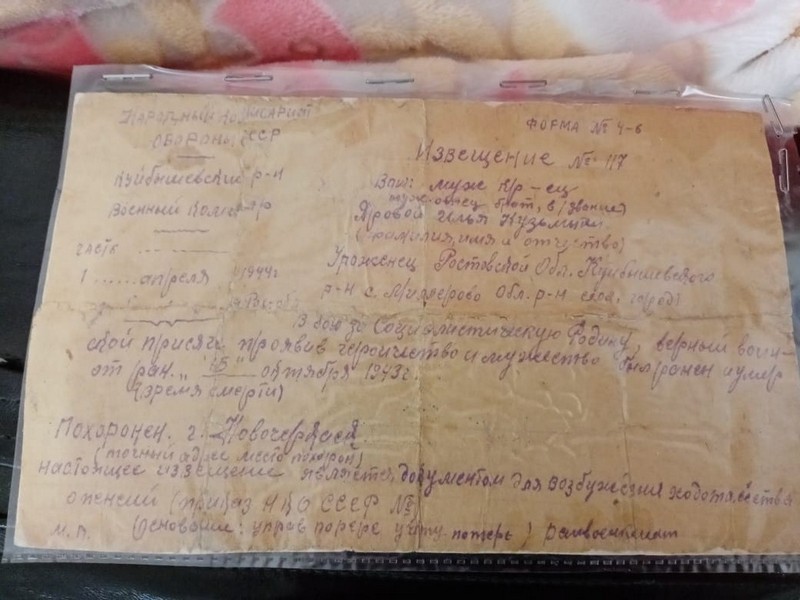 Народный комиссариат
обороны СССР
Куйбышевский р-н
Военный
часть
1 ...... апреля 1944г
Форма № 4-б
Извещение № 117
Ваш: муж кр-ец
муж. отец брат, в/звание)
Яровой Илья Кузьмич
(фамилия, имя и отчество)
Уроженец Ростовской Обл. Куйбышевского
р-н с. Миллерово Обл. р-н села, город)
В бою за Социалистическую Родину, верный воин-
ской присяги проявив героичество и мужество был ранен и умер
от ран. " октября 1943г.
(время смерти)
Похоронен. г. Новочеркасск
(точный адрес место похорон)
настоящее извещение является документом для возбуждения ходотайства
о пенсии (приказ НКО СССР №
М.П. Основание: управ учету потерь)